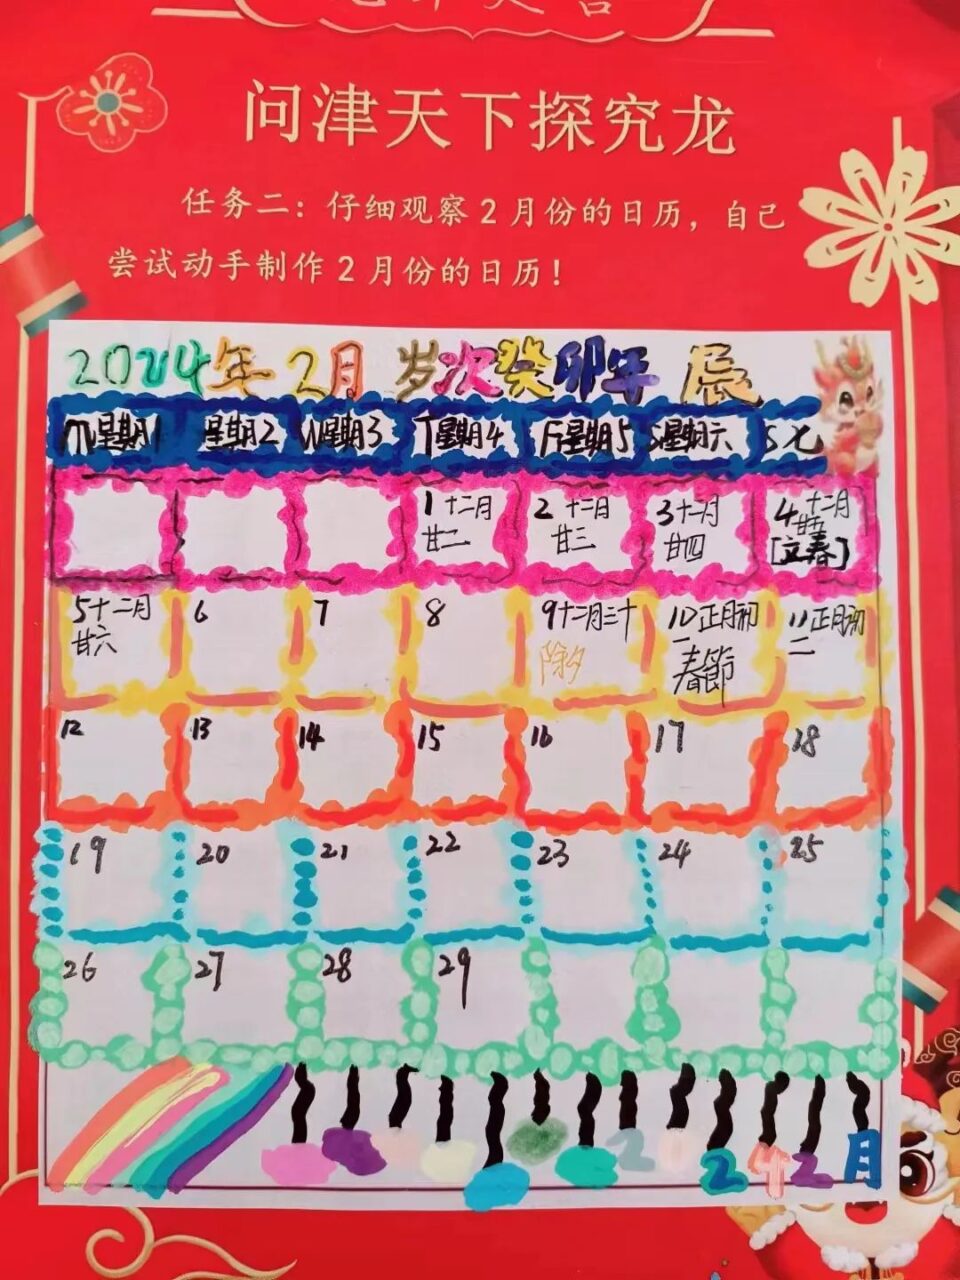 问津天下探究龙
任务二：仔细观察2月份的日历，自己
尝试动手制作2月份的日历！
2024年2月 岁次癸卯年 辰
M星期1 星期2 W星期3 T星期4 F星期5 S星期六 S七
1十二月 2十二月 3十二月 4十二月
廿二 廿三 廿四 廿五
[立春]
5十二月 6 7 8 9十二月三十 10正月初 11正月初
廿六 除夕 一春節 二
12 13 14 15 16 17 18
19 20 21 22 23 24 25
26 27 28 29
2024 2月